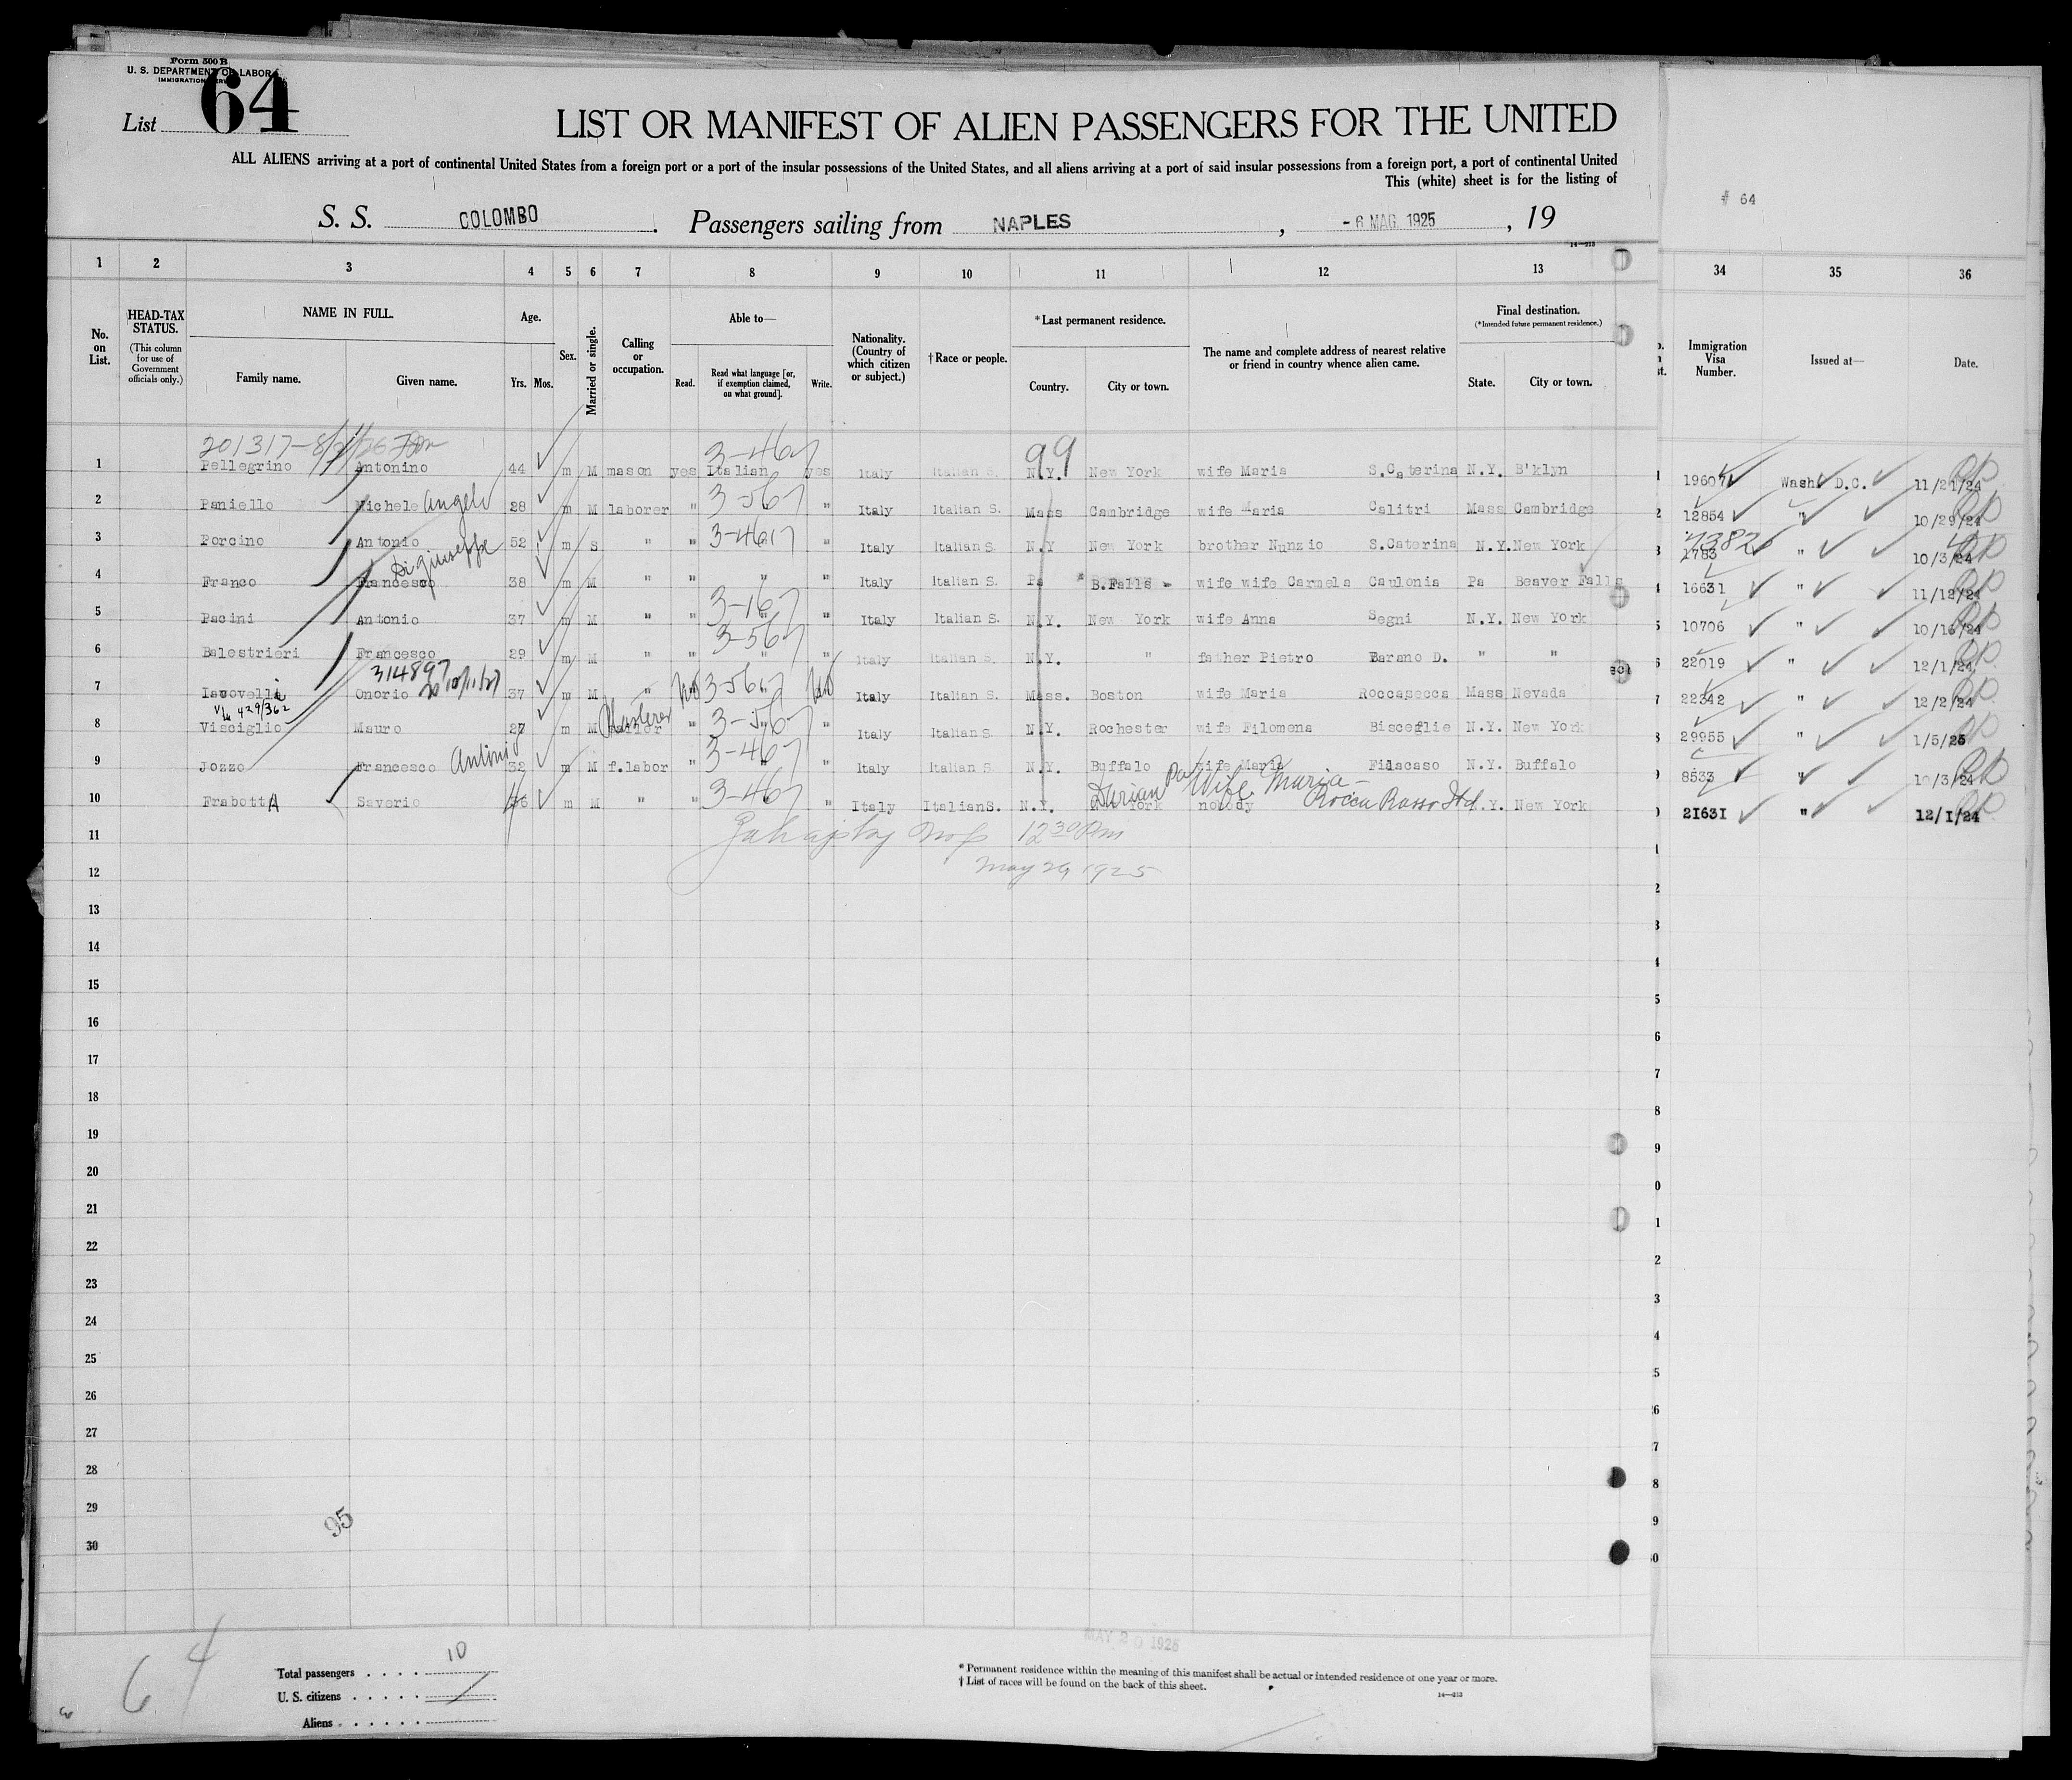 Form 500 B
U. S. DEPARTMENT OF LABOR
IMMIGRATION SERVICE
List 64
LIST OR MANIFEST OF ALIEN PASSENGERS FOR THE UNITED
ALL ALIENS arriving at a port of continental United States from a foreign port or a port of the insular possessions of the United States, and all aliens arriving at a port of said insular possessions from a foreign port, a port of continental United
This (white) sheet is for the listing of
# 64
S. S. COLOMBO. Passengers sailing from NAPLES, - 6 MAG 1925, 19
14—213
1 2 3 4 5 6 7 8 9 10 11 12 13 34 35 36
No. on List. HEAD-TAX STATUS. (This column for use of Government officials only.) NAME IN FULL. Family name. Given name. Age. Yrs. Mos. Sex. Married or single. Calling or occupation. Able to— Read. Read what language [or, if exemption claimed, on what ground]. Write. Nationality. (Country of which citizen or subject.) † Race or people. * Last permanent residence. Country. City or town. The name and complete address of nearest relative or friend in country whence alien came. Final destination. (* Intended future permanent residence.) State. City or town. Immigration Visa Number. Issued at— Date.
201317 3-467 99
1 Pellegrino Antonino 44 m M mason yes Italian yes Italy Italian S. N.Y. New York wife Maria S.Caterina N.Y. B'klyn 19607 Wash. D.C. 11/21/24
2 Paniello Michele Angelo 28 m M laborer " 3-567 " Italy Italian S. Mass Cambridge wife Maria Calitri Mass Cambridge 12854 " 10/29/24
3 Porcino Antonio 52 m S " " 3-467 " Italy Italian S. N.Y New York brother Nunzio S.Caterina N.Y. New York 1783 " 10/3/24
4 Franco Francesco Di Giuseppe 38 m M " " " " Italy Italian S. Pa B.Falls wife wife Carmela Caulonia Pa Beaver Falls 16631 " 11/12/24
5 Pacini Antonio 37 m M " " 3-167 " Italy Italian S. N.Y. New York wife Anna Segni N.Y. New York 10706 " 10/16/24
6 Balestrieri Francesco 29 m M " " 3-567 " Italy Italian S. N.Y. " father Pietro Barano D. " " 22019 " 12/1/24
314897 10/11/27
7 Iacovelli Onorio 37 m M " No 3-567 No Italy Italian S. Mass. Boston wife Maria Roccasecca Mass Nevada 22342 " 12/2/24
V/L 429/362
8 Visciglio Mauro 27 m M Plasterer " 3-567 " Italy Italian S. N.Y. Rochester wife Filomena Bisceglie N.Y. New York 29955 " 1/5/25
9 Jozzo Francesco Antonio 32 m M f.labor " 3-467 " Italy Italian S. N.Y. Buffalo wife Maria Filacaso N.Y. Buffalo 8533 " 10/3/24
Wife Maria -
10 FrabottA Saverio 36 m M " " 3-467 " Italy Italian S. N.Y. York nobody N.Y. New York 21631 " 12/1/24
11 12 30 Pm
12 May 29 1925
13
14
15
16
17
18
19
20
21
22
23
24
25
26
27
28
29
30
95
64
Total passengers 10
U. S. citizens
Aliens
MAY 20 1925
* Permanent residence within the meaning of this manifest shall be actual or intended residence of one year or more.
† List of races will be found on the back of this sheet.
14—213